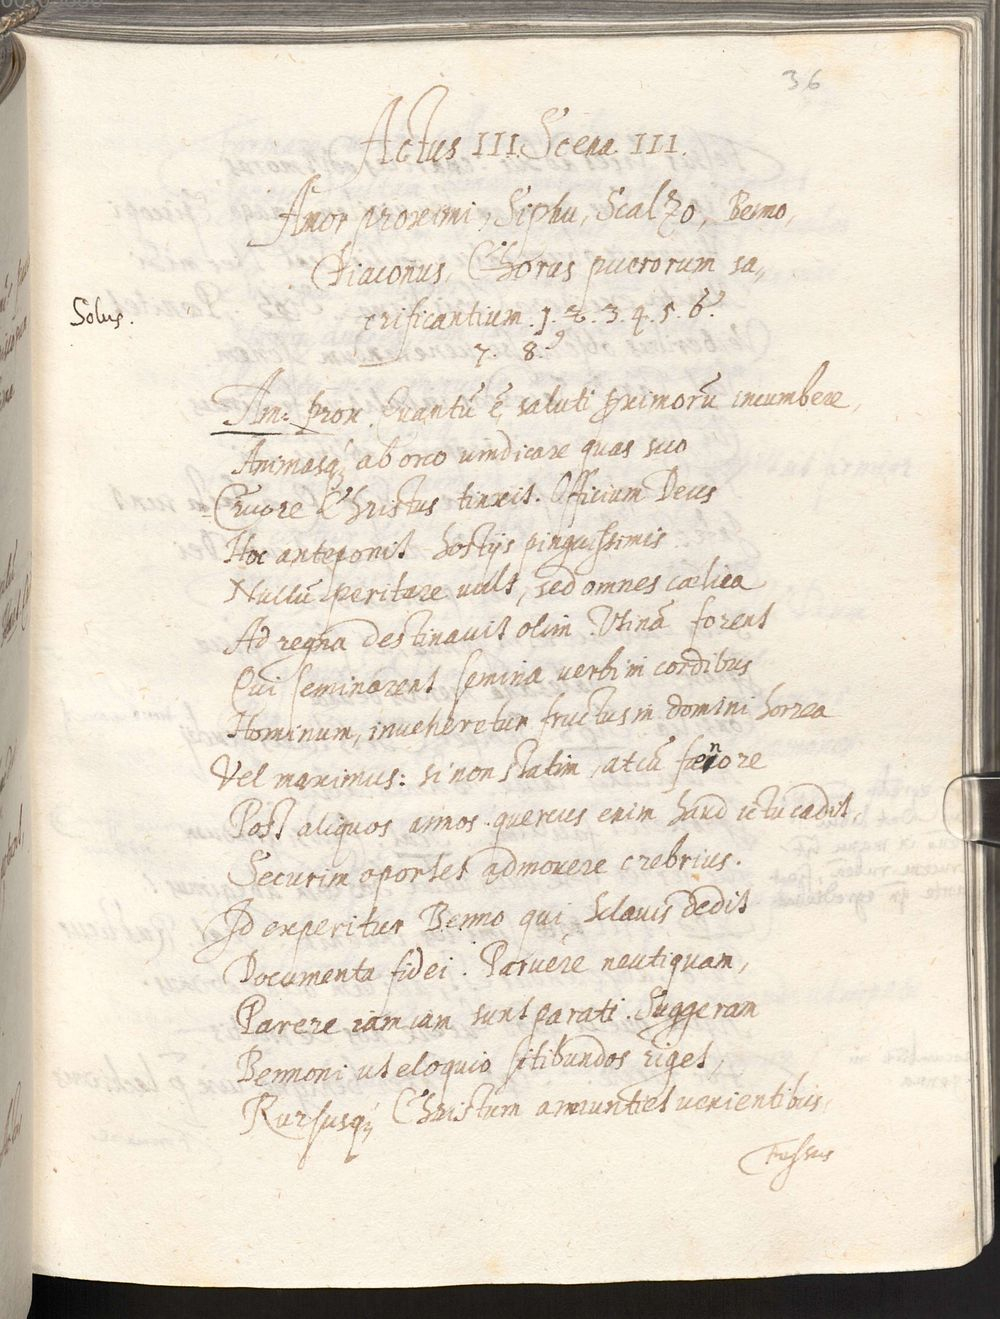 36
Actus III Scena III.
Amor proximi, Siphu, Scalzo, Benno,
Diaconus, Chorus puerorum sa„
Solus.
crificantium. 1. 2. 3. 4. 5. 6.
7. 8.
Am: prox. Quantũ ẽ saluti proximorũ incumbere,
Animasq; ab orco uindicare quas suo
Cruore Christus tinxit. Officium Deus
Hoc anteponit hostijs pinguissimis
Nullũ peritare uult, sed omnes cælica
Ad regna destinauit olim. Utinã forent
Qui seminarent semina verbi in cordibus
Hominum, inueheretur fructus in domini horrea
Vel maximus: si non statim, at cũ fænore
Post aliquos annos. quercus enim haud ictu cadit,
Securim oportet admouere crebrius.
Id experitur Benno qui Sclauis dedit
Documenta fidei. Paruere neutiquam,
Parere iam iam sunt parati. Suggeram
Bennoni ut eloquio sitibundos riget,
Rursusq; Christum annuntiet uenientibus,
Fessus